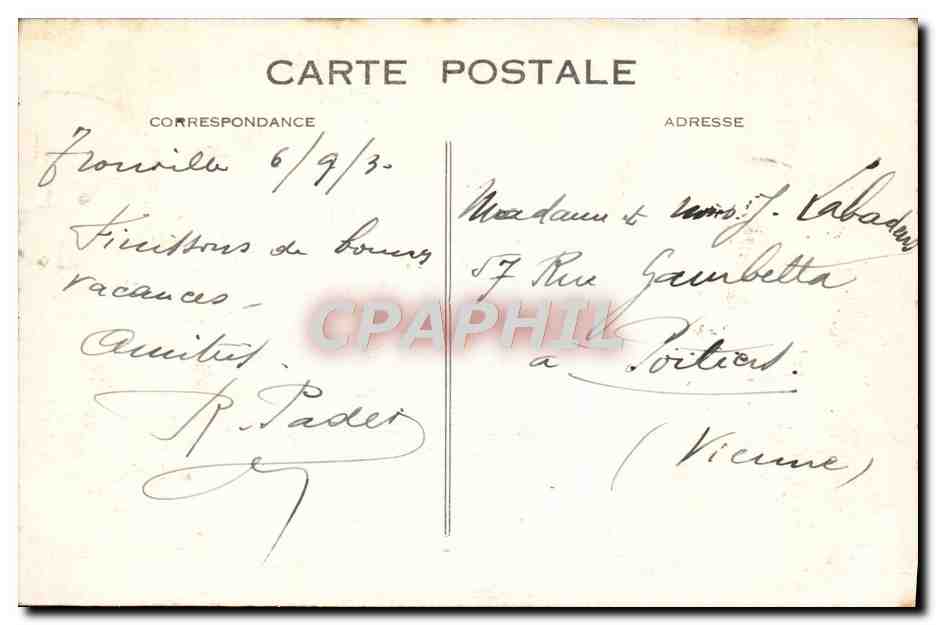 CARTE POSTALE
CORRESPONDANCE
Trouville 6/9/30
Finissons de bonnes
vacances -
Amitiés.
R. Pader
ADRESSE
Madame et J. Labadens
57 Rue Gambetta
a Poitiers.
(Vienne)
CPAPHIL